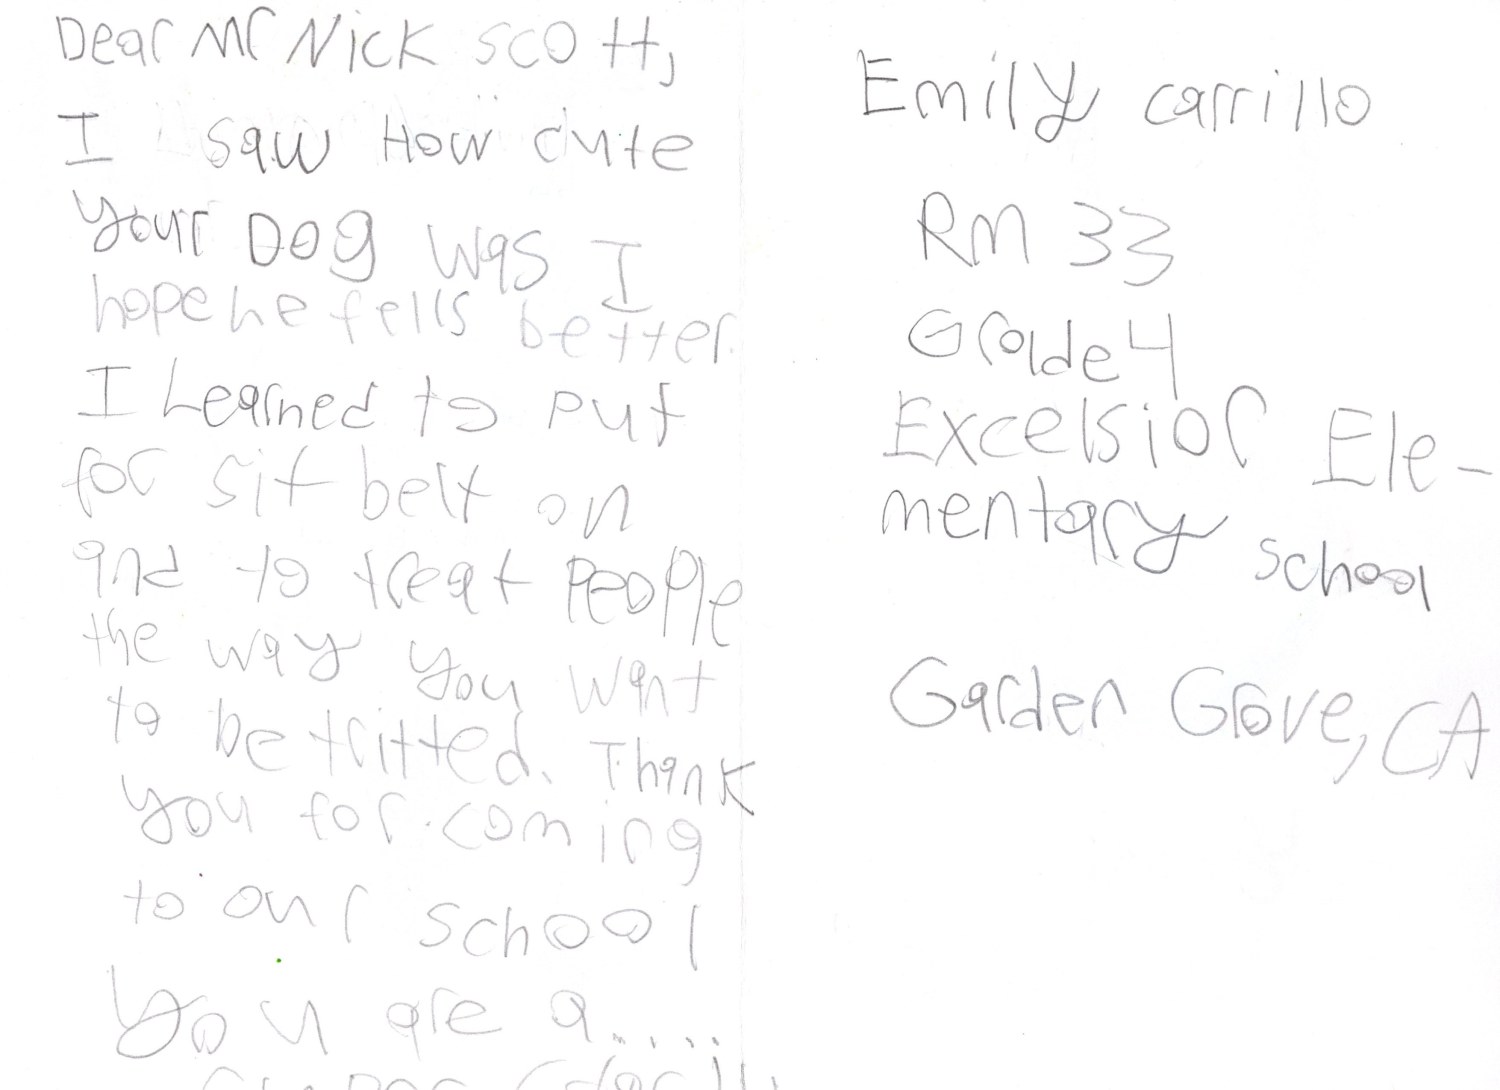 Dear Mr Nick scott,
I saw How cute
your Dog was I
hope he fells better.
I Learned to put
for sit belt on
and to treat people
the way you want
to be tritted. Thank
you for coming
to our school
you are a.....
Emily carrillo
RM 33
Grade 4
Excelsior Ele-
mentary school
Garden Grove, CA